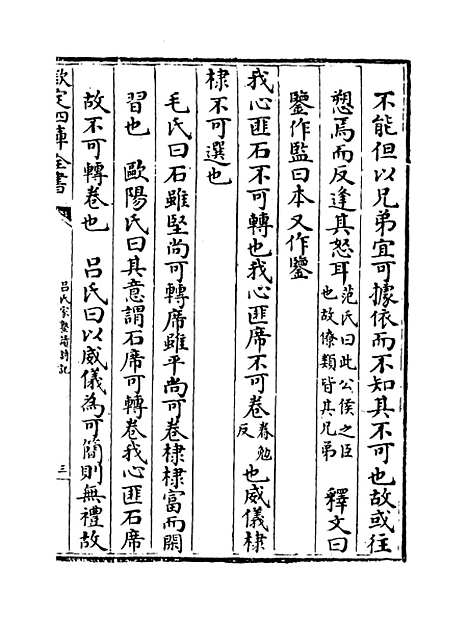 不能但以兄弟宜可據依而不知其不可也故或往
愬焉而反逢其怒耳范氏曰此公侯之臣也故僚類皆其兄弟　釋文曰
鑒作監曰本又作鑒
我心匪石不可轉也我心匪席不可卷眷勉反也威儀棣
棣不可選也
毛氏曰石雖堅尚可轉席雖平尚可卷棣棣富而閑
習也　歐陽氏曰其意謂石席可轉卷我心匪石席
故不可轉卷也　呂氏曰以威儀為可簡則無禮故
欽定四庫全書
呂氏家塾讀詩記
三